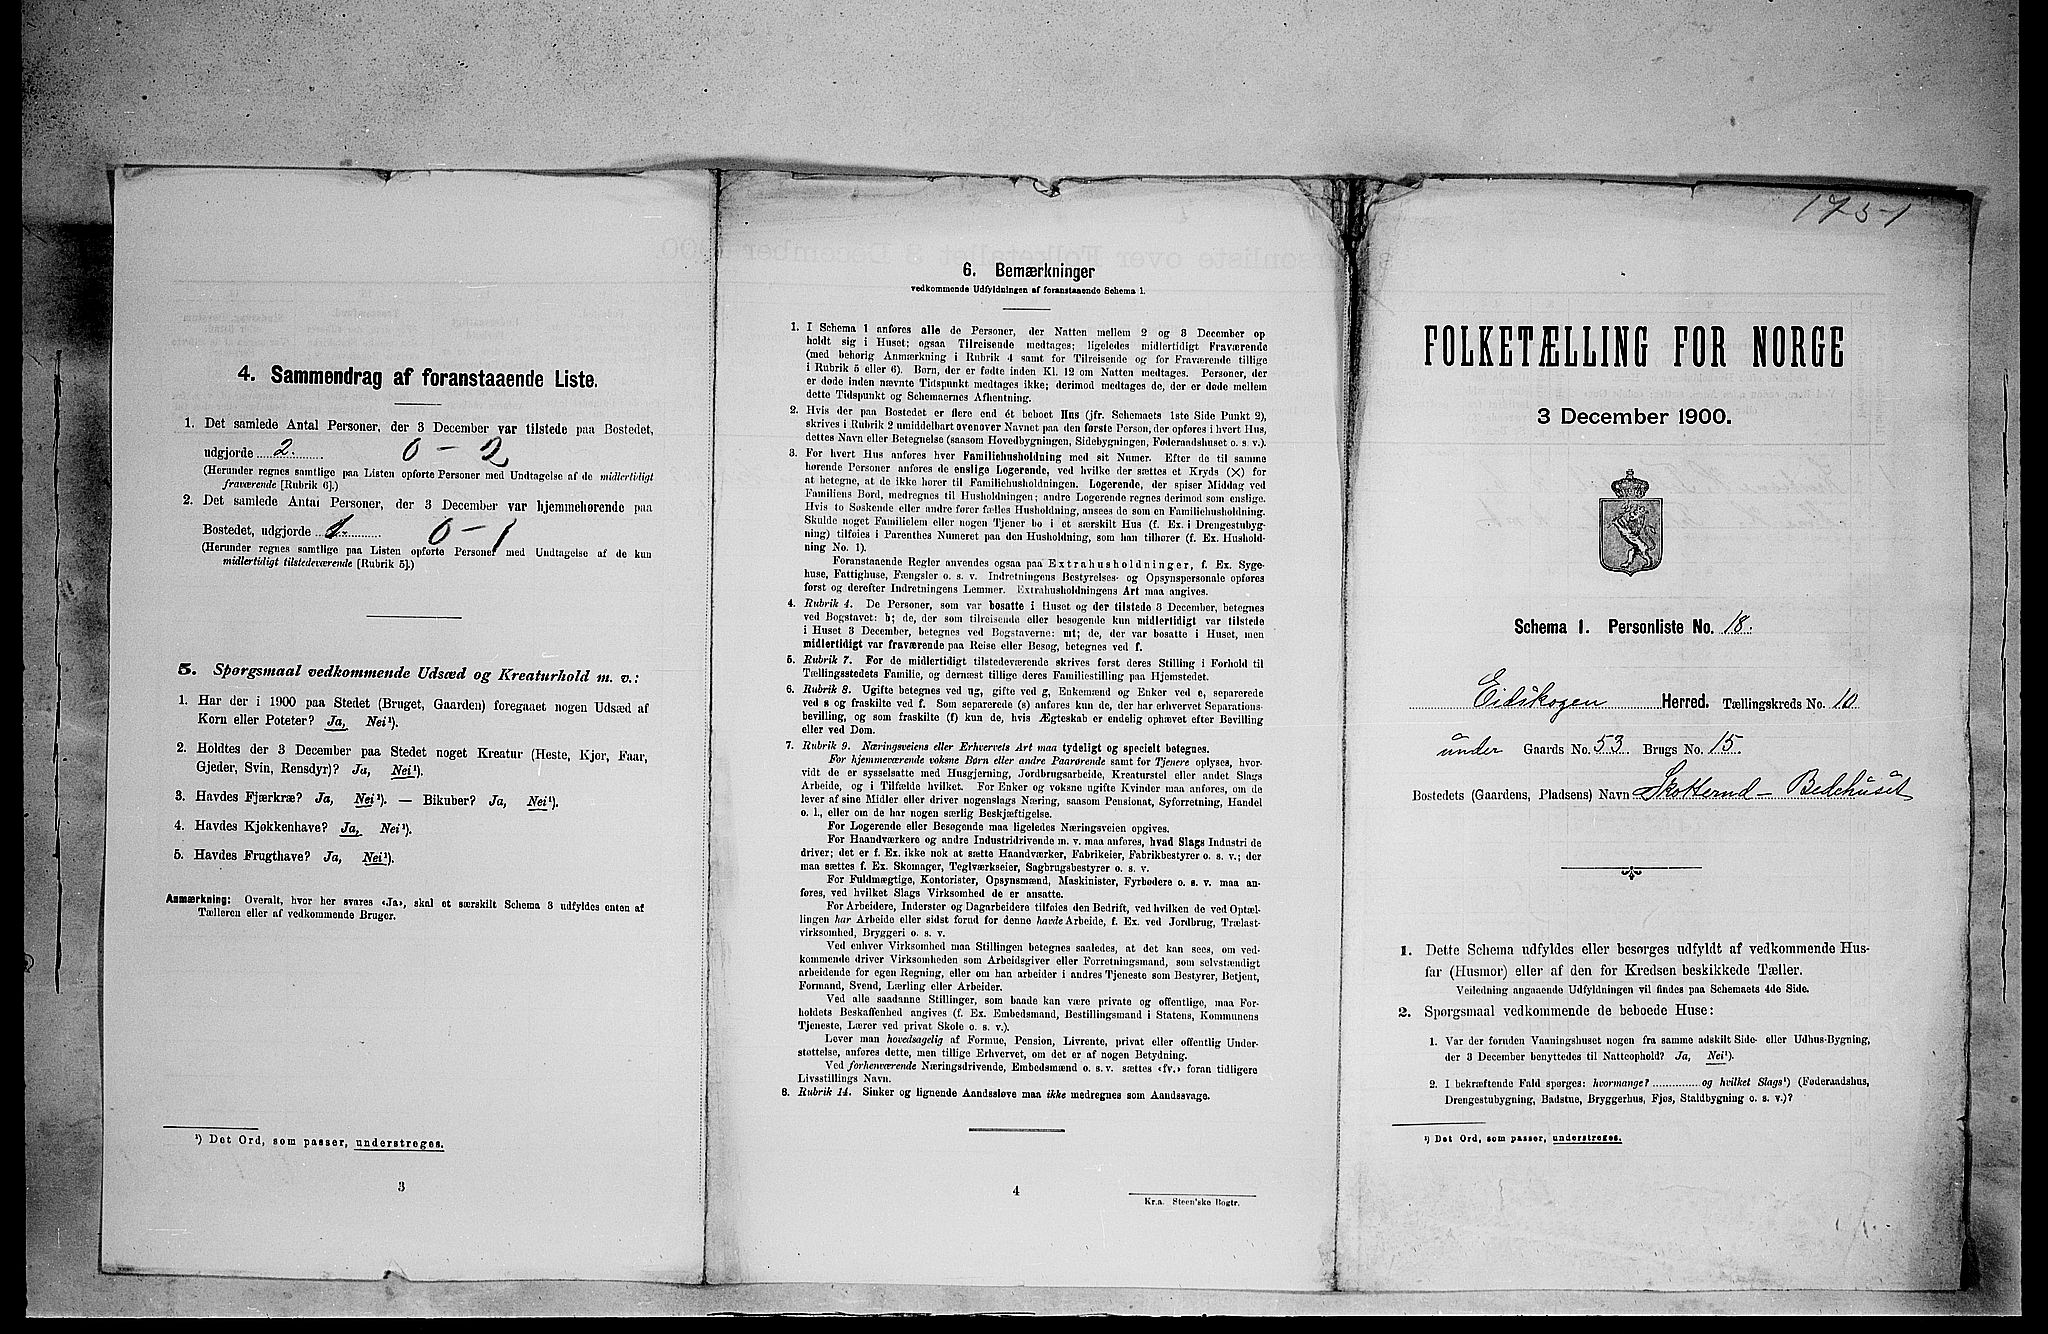 4. Sammendrag af foranstaaende Liste.
1. Det samlede Antal Personer, der 3 December var tilstede paa Bostedet,
udgjorde 2. 0 – 2
(Herunder regnes samtlige paa Listen opførte Personer med Undtagelse af de midlertidigt
fraværende [Rubrik 6].)
2. Det samlede Antal Personer, der 3 December var hjemmehørende paa
Bostedet, udgjorde 1. 0 – 1
(Herunder regnes samtlige paa Listen opførte Personer med Undtagelse af de kun
midlertidigt tilstedeværende [Rubrik 5].)
5. Spørgsmaal vedkommende Udsæd og Kreaturhold m. v.:
1. Har der i 1900 paa Stedet (Bruget, Gaarden) foregaaet nogen Udsæd af
Korn eller Poteter? Ja, Nei¹).
2. Holdtes der 3 December paa Stedet noget Kreatur (Heste, Kjør, Faar,
Gjeder, Svin, Rensdyr)? Ja, Nei¹).
3. Havdes Fjærkræ? Ja, Nei¹). — Bikuber? Ja, Nei¹).
4. Havdes Kjøkkenhave? Ja, Nei¹).
5. Havdes Frugthave? Ja, Nei¹).
Anmærkning: Overalt, hvor her svares «Ja», skal et særskilt Schema 3 udfyldes enten af
Tælleren eller af vedkommende Bruger.
¹) Det Ord, som passer, understreges.
3
6. Bemærkninger
vedkommende Udfyldningen af foranstaaende Schema 1.
1. I Schema 1 anføres alle de Personer, der Natten mellem 2 og 3 December op
holdt sig i Huset; ogsaa Tilreisende medtages; ligeledes midlertidigt Fraværende
(med behørig Anmærkning i Rubrik 4 samt for Tilreisende og for Fraværende tillige
i Rubrik 5 eller 6). Børn, der er fødte inden Kl. 12 om Natten medtages. Personer, der
er døde inden nævnte Tidspunkt medtages ikke; derimod medtages de, der er døde mellem
dette Tidspunkt og Schemaernes Afhentning.
2. Hvis der paa Bostedet er flere end ét beboet Hus (jfr. Schemaets 1ste Side Punkt 2),
skrives i Rubrik 2 umiddelbart ovenover Navnet paa den første Person, der opføres i hvert Hus,
dettes Navn eller Betegnelse (saasom Hovedbygningen, Sidebygningen, Føderaadshuset o. s. v.).
3. For hvert Hus anføres hver Familiehusholdning med sit Numer. Efter de til samme
hørende Personer anføres de enslige Logerende, ved hvilke der sættes et Kryds (×) for
at betegne, at de ikke hører til Familiehusholdningen. Logerende, der spiser Middag ved
Familiens Bord, medregnes til Husholdningen; andre Logerende regnes derimod som enslige.
Hvis to Søskende eller andre fører fælles Husholdning, ansees de som en Familiehusholdning.
Skulde noget Familielem eller nogen Tjener bo i et særskilt Hus (f. Ex. i Drengestubyg-
ning) tilføies i Parenthes Numeret paa den Husholdning, som han tilhører (f. Ex. Hushold-
ning No. 1).
Foranstaaende Regler anvendes ogsaa paa Extrahusholdninger, f. Ex. Syge-
huse, Fattighuse, Fængsler o. s. v. Indretningens Bestyrelses- og Opsynspersonale opføres
først og derefter Indretningens Lemmer. Extrahusholdningens Art maa angives.
4. Rubrik 4. De Personer, som var bosatte i Huset og der tilstede 3 December, betegnes
ved Bogstavet: b; de, der som tilreisende eller besøgende kun midlertidigt var tilstede
i Huset 3 December, betegnes ved Bogstaverne: mt; de, der var bosatte i Huset, men
midlertidigt var fraværende paa Reise eller Besøg, betegnes ved f.
5. Rubrik 7. For de midlertidigt tilstedeværende skrives først deres Stilling i Forhold til
Tællingsstedets Familie, og dernæst tillige deres Familiestilling paa Hjemstedet.
6. Rubrik 8. Ugifte betegnes ved ug, gifte ved g, Enkemænd og Enker ved e, separerede
ved s og fraskilte ved f. Som separerede (s) anføres kun de, der har erhvervet Separations-
bevilling, og som fraskilte (f) kun de, hvis Ægteskab er endelig ophævet efter Bevilling
eller ved Dom.
7. Rubrik 9. Næringsveiens eller Erhvervets Art maa tydeligt og specielt betegnes.
For hjemmeværende voksne Børn eller andre Paarørende samt for Tjenere oplyses, hvor-
vidt de er sysselsatte med Husgjerning, Jordbrugsarbeide, Kreaturstel eller andet Slags
Arbeide, og i Tilfælde hvilket. For Enker og voksne ugifte Kvinder maa anføres, om de
lever af sine Midler eller driver nogenslags Næring, saasom Pensionat, Syforretning, Handel
o. l., eller om de har nogen særlig Beskjæftigelse.
For Logerende eller Besøgende maa ligeledes Næringsveien opgives.
For Haandværkere og andre Industridrivende m. v. maa anføres, hvad Slags Industri de
driver; det er f. Ex. ikke nok at sætte Haandværker, Fabrikeier, Fabrikbestyrer o. s. v.; der
maa sættes f. Ex. Skomager, Teglværkseier, Sagbrugsbestyrer o. s. v.
For Fuldmægtige, Kontorister, Opsynsmænd, Maskinister, Fyrbødere o. s. v. maa an-
føres, ved hvilket Slags Virksomhed de er ansatte.
For Arbeidere, Inderster og Dagarbeidere tilføies den Bedrift, ved hvilken de ved Optæl-
lingen har Arbeide eller sidst forud for denne havde Arbeide, f. Ex. ved Jordbrug, Trælast-
virksomhed, Bryggeri o. s. v.
Ved enhver Virksomhed maa Stillingen betegnes saaledes, at det kan sees, om ved-
kommende driver Virksomheden som Arbeidsgiver eller Forretningsmand, som selvstændigt
arbeidende for egen Regning, eller om han arbeider i andres Tjeneste som Bestyrer, Betjent,
Formand, Svend, Lærling eller Arbeider.
Ved alle saadanne Stillinger, som baade kan være private og offentlige, maa For-
holdets Beskaffenhed angives (f. Ex. Embedsmand, Bestillingsmand i Statens, Kommunens
Tjeneste, Lærer ved privat Skole o. s. v.).
Lever man hovedsagelig af Formue, Pension, Livrente, privat eller offentlig Under-
støttelse, anføres dette, men tillige Erhvervet, om det er af nogen Betydning.
Ved forhenværende Næringsdrivende, Embedsmænd o. s. v. sættes «fv.» foran tidligere
Livsstillings Navn.
8. Rubrik 14. Sinker og lignende Aandssløve maa ikke medregnes som Aandssvage.
4
Kr.a. Steen'ske Bogtr.
1751
FOLKETÆLLING FOR NORGE
3 December 1900.
Schema 1. Personliste No. 18.
Eidskogen Herred. Tællingskreds No. 10
under Gaards No. 53. Brugs No. 15.
Bostedets (Gaardens, Pladsens) Navn Skotterud – Bedehuset
1. Dette Schema udfyldes eller besørges udfyldt af vedkommende Hus-
far (Husmor) eller af den for Kredsen beskikkede Tæller.
Veiledning angaaende Udfyldningen vil findes paa Schemaets 4de Side.
2. Spørgsmaal vedkommende de beboede Huse:
1. Var der foruden Vaaningshuset nogen fra samme adskilt Side- eller Udhus-Bygning,
der 3 December benyttedes til Natteophold? Ja, Nei¹).
2. I bekræftende Fald spørges: hvormange? og hvilket Slags¹) (Føderaadshus,
Drengestubygning, Badstue, Bryggerhus, Fjøs, Staldbygning o. s. v.)?
¹) Det Ord, som passer, understreges.